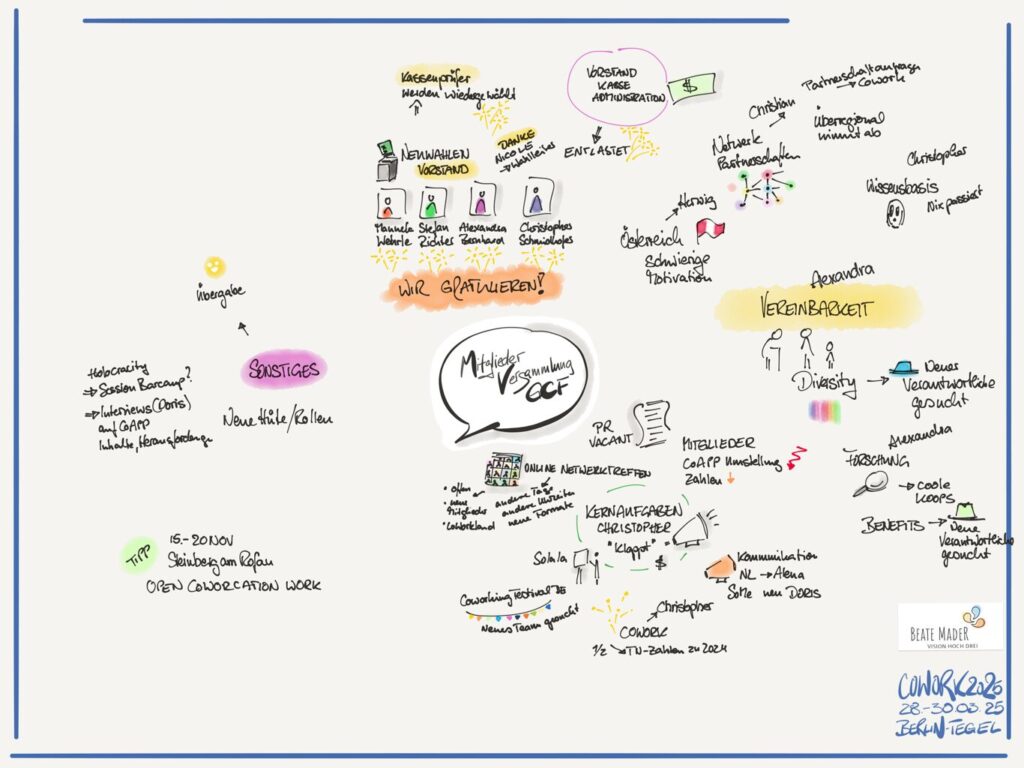 Kassenprüfer
werden wiedergewählt
NEUWAHLEN
VORSTAND
DANKE
NICOLE
→ Wahlleiter
Manuela
Wehrle
Stefan
Richter
Alexandra
Bernhard
Christopher
Schmidhofer
WIR GRATULIEREN!
VORSTAND
KASSE
ADMINISTRATION
$
ENTLASTET
Netzwerk
Partnerschaften
Christian
Partnerschaftanfragen
→ Cowork
Überregional
nimmt ab
Christopher
Wissensbasis
Nix passiert
Herwig
Österreich
Schwierige
Motivation
Alexandra
VEREINBARKEIT
Diversity
→ Neues
Verantwortliche
gesucht
Alexandra
FORSCHUNG
→ coole
KOOPS
BENEFITS → Neue
Verantwortliche
gesucht
Mitglieder
Versammlung
GCF
PR
VACANT
MITGLIEDER
CoAPP Umstellung
Zahlen
ONLINE NETWERKTREFFEN
• offen
• neue
Mitglieder
• Coworkland
andere Tage
andere Uhrzeiten
neue Formate
KERNAUFGABEN
CHRISTOPHER
"Klappt"
$
Kommunikation
NL → Alena
SoMe neu DORIS
Solala
Coworking Festival DE
Neues Team gesucht
Christopher
COWORK
1/2 TN-Zahlen zu 2024
Übergabe
SONSTIGES
Neue Hüte/Rollen
Holocracity
⇒ Session Barcamp?
⇒ Interviews (Doris)
auf CoAPP
Inhalte, Herausforderungen
TIPP
15.-20 NOV
Steinberg am Rofan
OPEN COWORCATION WORK
BEATE MADER
VISION HOCH DREI
COWORK2025
28.-30.03.25
BERLIN-TEGEL